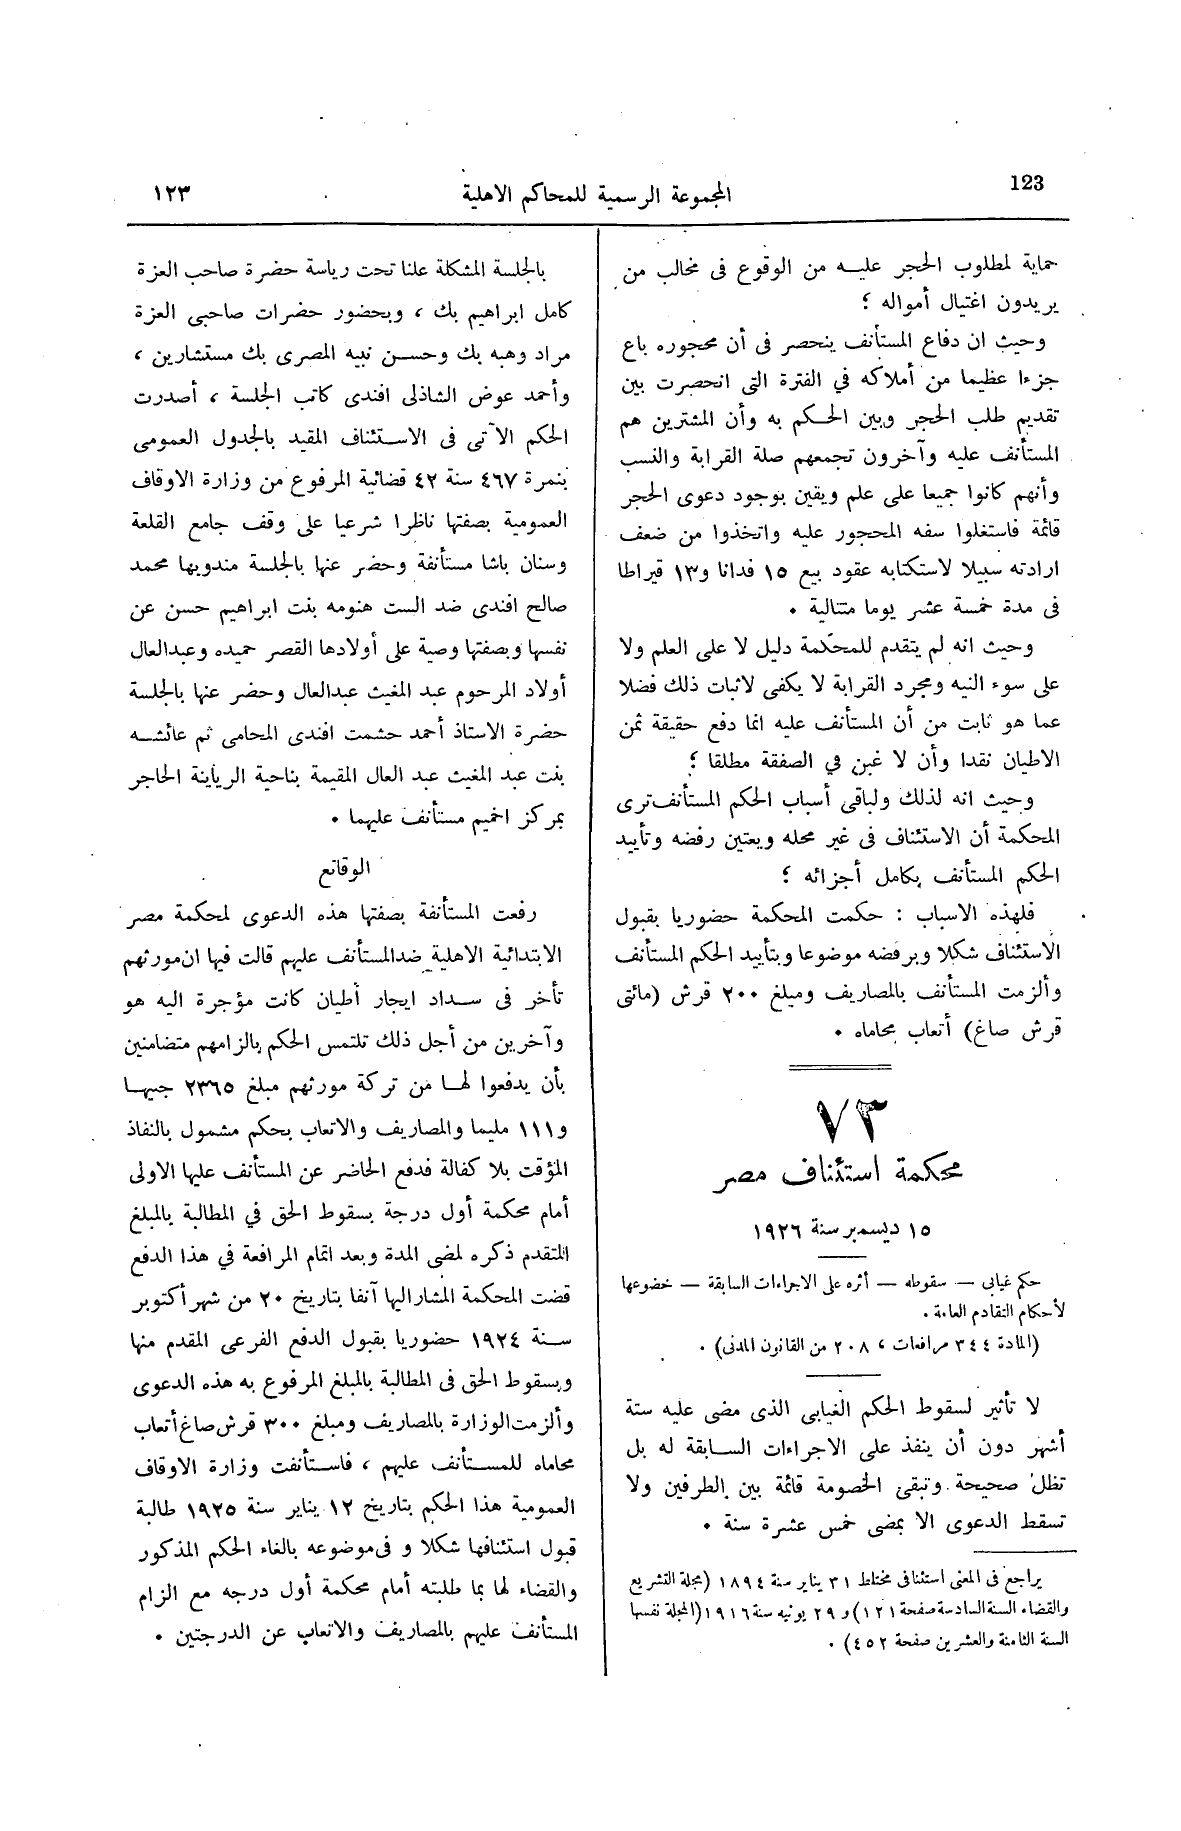 123
المجموعة الرسمية للمحاكم الاهلية
١٢٣
حماية لمطلوب الحجر عليه من الوقوع فى مخالب من
يريدون اغتيال أمواله ؟
وحيث ان دفاع المستأنف ينحصر فى أن محجوره باع
جزءا عظيما من أملاكه في الفترة التى انحصرت بين
تقديم طلب الحجر وبين الحكم به وأن المشترين هم
المستأنف عليه وآخرون تجمعهم صلة القرابة والنسب
وأنهم كانوا جميعا على علم ويقين بوجود دعوى الحجر
قائمة فاستغلوا سفه المحجور عليه واتخذوا من ضعف
ارادته سبيلا لاستكتابه عقود بيع ١٥ فدانا و١٣ قيراطا
فى مدة خمسة عشر يوما متتالية .
وحيث انه لم يتقدم للمحكمة دليل لا على العلم ولا
على سوء النيه ومجرد القرابة لا يكفى لاثبات ذلك فضلا
عما هو ثابت من أن المستأنف عليه انما دفع حقيقة ثمن
الاطيان نقدا وأن لا غبن في الصفقة مطلقا ؟
وحيث انه لذلك ولباقى أسباب الحكم المستأنف ترى
المحكمة أن الاستئناف فى غير محله ويعتين رفضه وتأييد
الحكم المستأنف بكامل أجزائه ؟
فلهذه الاسباب : حكمت المحكمة حضوريا بقبول
الاستئناف شكلا وبرفضه موضوعا وبتأييد الحكم المستأنف
وألزمت المستأنف بالمصاريف ومبلغ ٢٠٠ قرش (مائتى
قرش صاغ) أتعاب محاماه .
٧٣
محكمة استئناف مصر
١٥ ديسمبر سنة ١٩٢٦
حكم غيابى — سقوطه — أثره على الاجراءات السابقة — خضوعها
لأحكام التقادم العامة .
(المادة ٣٤٤ مرافعات ، ٢٠٨ من القانون المدنى) .
لا تأثير لسقوط الحكم الغيابى الذى مضى عليه ستة
أشهر دون أن ينفذ على الاجراءات السابقة له بل
تظل صحيحة وتبقى الخصومة قائمة بين الطرفين ولا
تسقط الدعوى الا بمضى خمس عشرة سنة .
يراجع فى المعنى استئنافى مختلط ٣١ يناير سنة ١٨٩٤ (مجلة التشريع
والقضاء السنة السادسة صفحة ١٢١) و ٢٩ يونيه سنة ١٩١٦ (المجلة نفسها
السنة الثامنة والعشرين صفحة ٤٥٢) .
بالجلسة المشكلة علنا تحت رياسة حضرة صاحب العزة
كامل ابراهيم بك ، وبحضور حضرات صاحبى العزة
مراد وهبه بك وحسن نبيه المصرى بك مستشارين ،
وأحمد عوض الشاذلى افندى كاتب الجلسة ، أصدرت
الحكم الآتى فى الاستئناف المقيد بالجدول العمومى
بنمرة ٤٦٧ سنة ٤٢ قضائية المرفوع من وزارة الاوقاف
العمومية بصفتها ناظرا شرعيا على وقف جامع القلعة
وسنان باشا مستأنفة وحضر عنها بالجلسة مندوبها محمد
صالح افندى ضد الست هنومه بنت ابراهيم حسن عن
نفسها وبصفتها وصية على أولادها القصر حميده وعبدالعال
أولاد المرحوم عبد المغيث عبدالعال وحضر عنها بالجلسة
حضرة الاستاذ أحمد حشمت افندى المحامى ثم عائشه
بنت عبد المغيث عبد العال المقيمة بناحية الرياينة الحاجر
بمركز اخميم مستأنف عليهما .
الوقائع
رفعت المستأنفة بصفتها هذه الدعوى لمحكمة مصر
الابتدائية الاهلية ضدالمستأنف عليهم قالت فيها ان مورثهم
تأخر فى سداد ايجار أطيان كانت مؤجرة اليه هو
وآخرين من أجل ذلك تلتمس الحكم بالزامهم متضامنين
بأن يدفعوا لها من تركة مورثهم مبلغ ٢٣٦٥ جنيها
و١١١ مليما والمصاريف والاتعاب بحكم مشمول بالنفاذ
المؤقت بلا كفالة فدفع الحاضر عن المستأنف عليها الاولى
أمام محكمة أول درجة بسقوط الحق في المطالبة بالمبلغ
المتقدم ذكره لمضى المدة وبعد اتمام المرافعة في هذا الدفع
قضت المحكمة المشار اليها آنفا بتاريخ ٢٠ من شهر أكتوبر
سنة ١٩٢٤ حضوريا بقبول الدفع الفرعى المقدم منها
وبسقوط الحق فى المطالبة بالمبلغ المرفوع به هذه الدعوى
وألزمت الوزارة بالمصاريف ومبلغ ٣٠٠ قرش صاغ أتعاب
محاماه للمستأنف عليهم ، فاستأنفت وزارة الاوقاف
العمومية هذا الحكم بتاريخ ١٢ يناير سنة ١٩٢٥ طالبة
قبول استئنافها شكلا و فى موضوعه بالغاء الحكم المذكور
والقضاء لها بما طلبته أمام محكمة أول درجه مع الزام
المستأنف عليهم بالمصاريف والاتعاب عن الدرجتين .